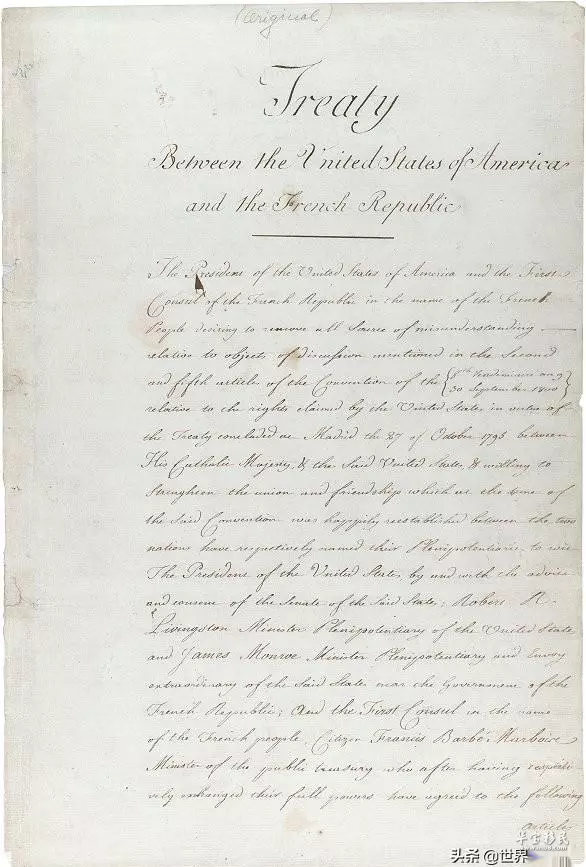 (Original)
Treaty
Between the United States of America
and the French Republic
The President of the United States of America and the First
Consul of the French Republic in the name of the French
People desiring to remove all Source of misunderstanding
relative to objects of discussion mentioned in the Second
and fifth articles of the Convention of the { 8th Vendémiaire an 9
30 September 1800 }
relative to the rights claimed by the United States in virtue of
the Treaty concluded at Madrid the 27 of October 1795 between
His Catholic Majesty, & the Said United States, & willing to
Strengthen the union and friendship which at the time of
the Said Convention was happily reestablished between the two
nations have respectively named their Plenipotentiaries to wit
The President of the United States, by and with the advice
and consent of the Senate of the Said States; Robert R.
Livingston Minister Plenipotentiary of the United States
and James Monroe Minister Plenipotentiary and Envoy
extraordinary of the Said States near the Government of the
French Republic; And the First Consul in the name
of the French people, Citizen Francis Barbé Marbois
Minister of the public treasury who after having respecti-
vely exchanged their full powers have agreed to the following
articles
头条 @世界